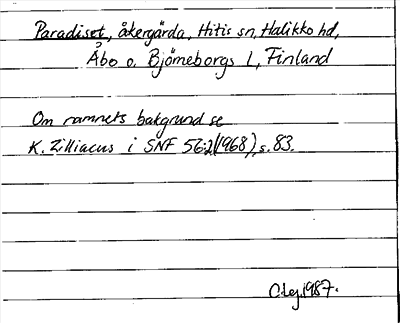 Paradiset, åkergärda, Hitis sn, Halikko hd,
Åbo o. Björneborgs l, Finland
Om namnets bakgrund se
K. Zilliacus i SNF 56:2 (1968), s. 83.
1987.